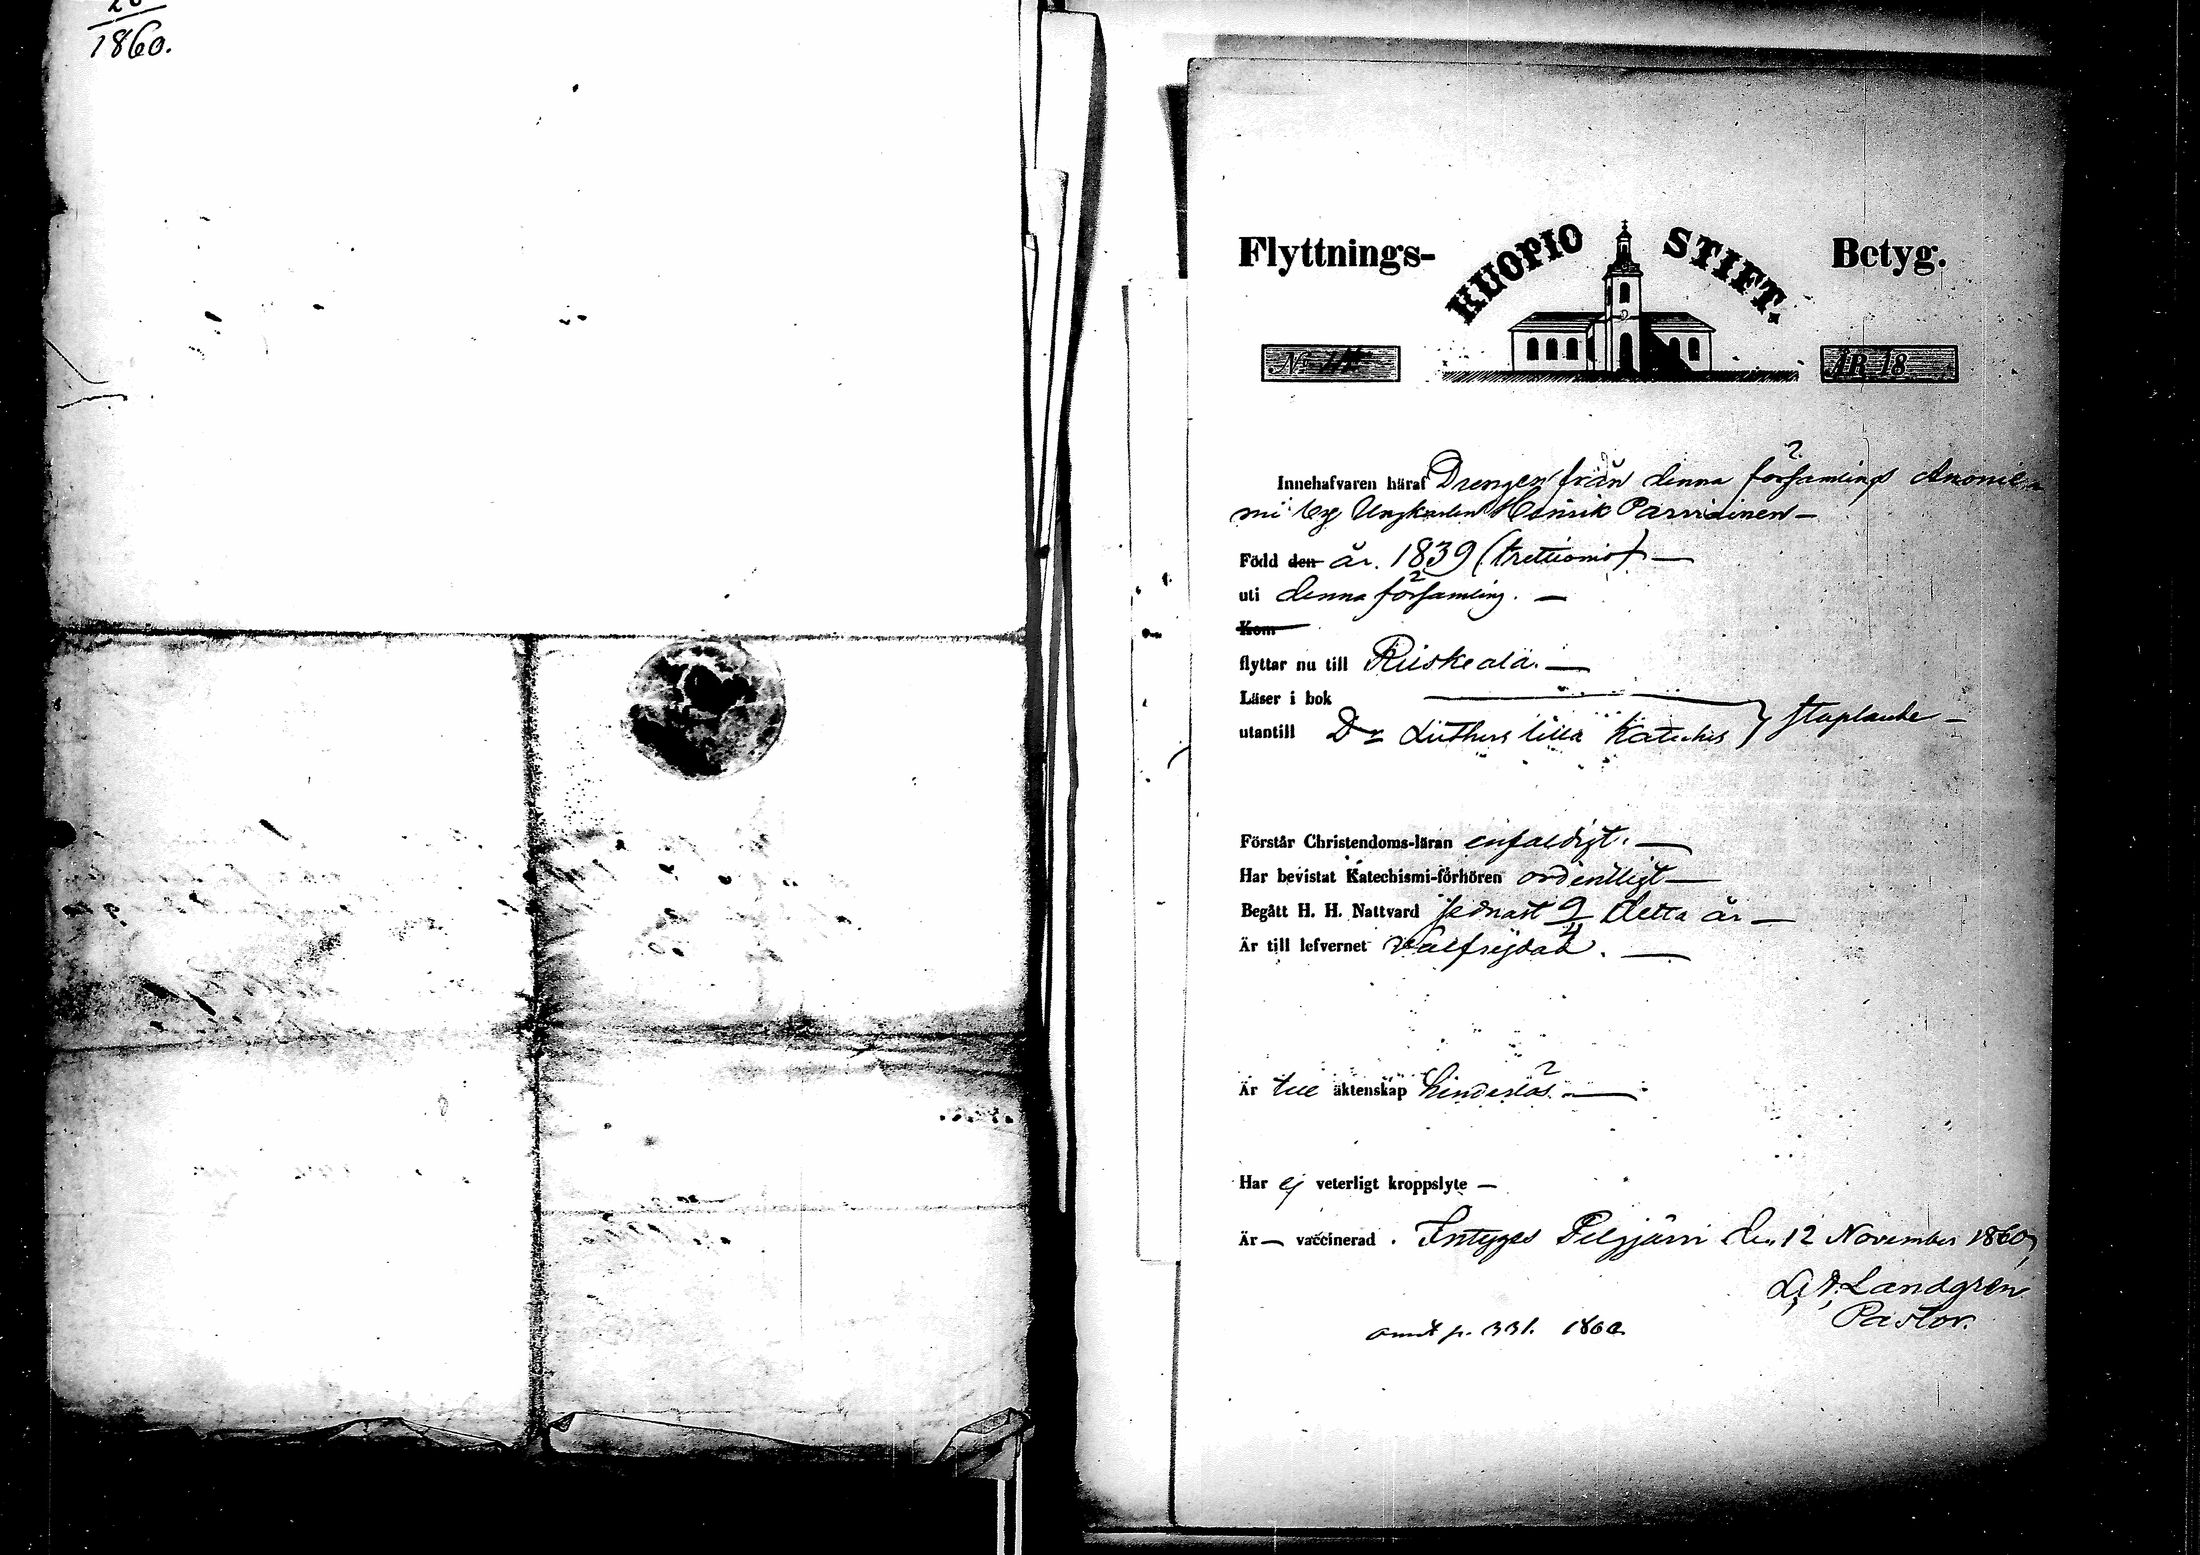 1860.
Flyttnings- KUOPIO STIFT. Betyg.
No
ÅR 18
Innehafvaren häraf Drengen från denna församlings
by Ungkarlen Henrik Parviainen —
Född den år. 1839 (trettionio) —
uti denna församling. —
Kom
flyttar nu till Ruskeala. —
Läser i bok
utantill Dr Luthers lilla Kateches } staplande —
Förstår Christendoms-läran enfaldigt. —
Har bevistat Katechismi-förhören ordentligt —
Begått H. H. Nattvard sednast 9/4 detta år —
Är till lefvernet välfrejdad. —
Är till äktenskap hinderlös. —
Har ej veterligt kroppslyte —
Är — vaccinerad. Intygas Pelgjärvi den 12 November 1860,
Landgrén
Pastor.
p. 331. 1860